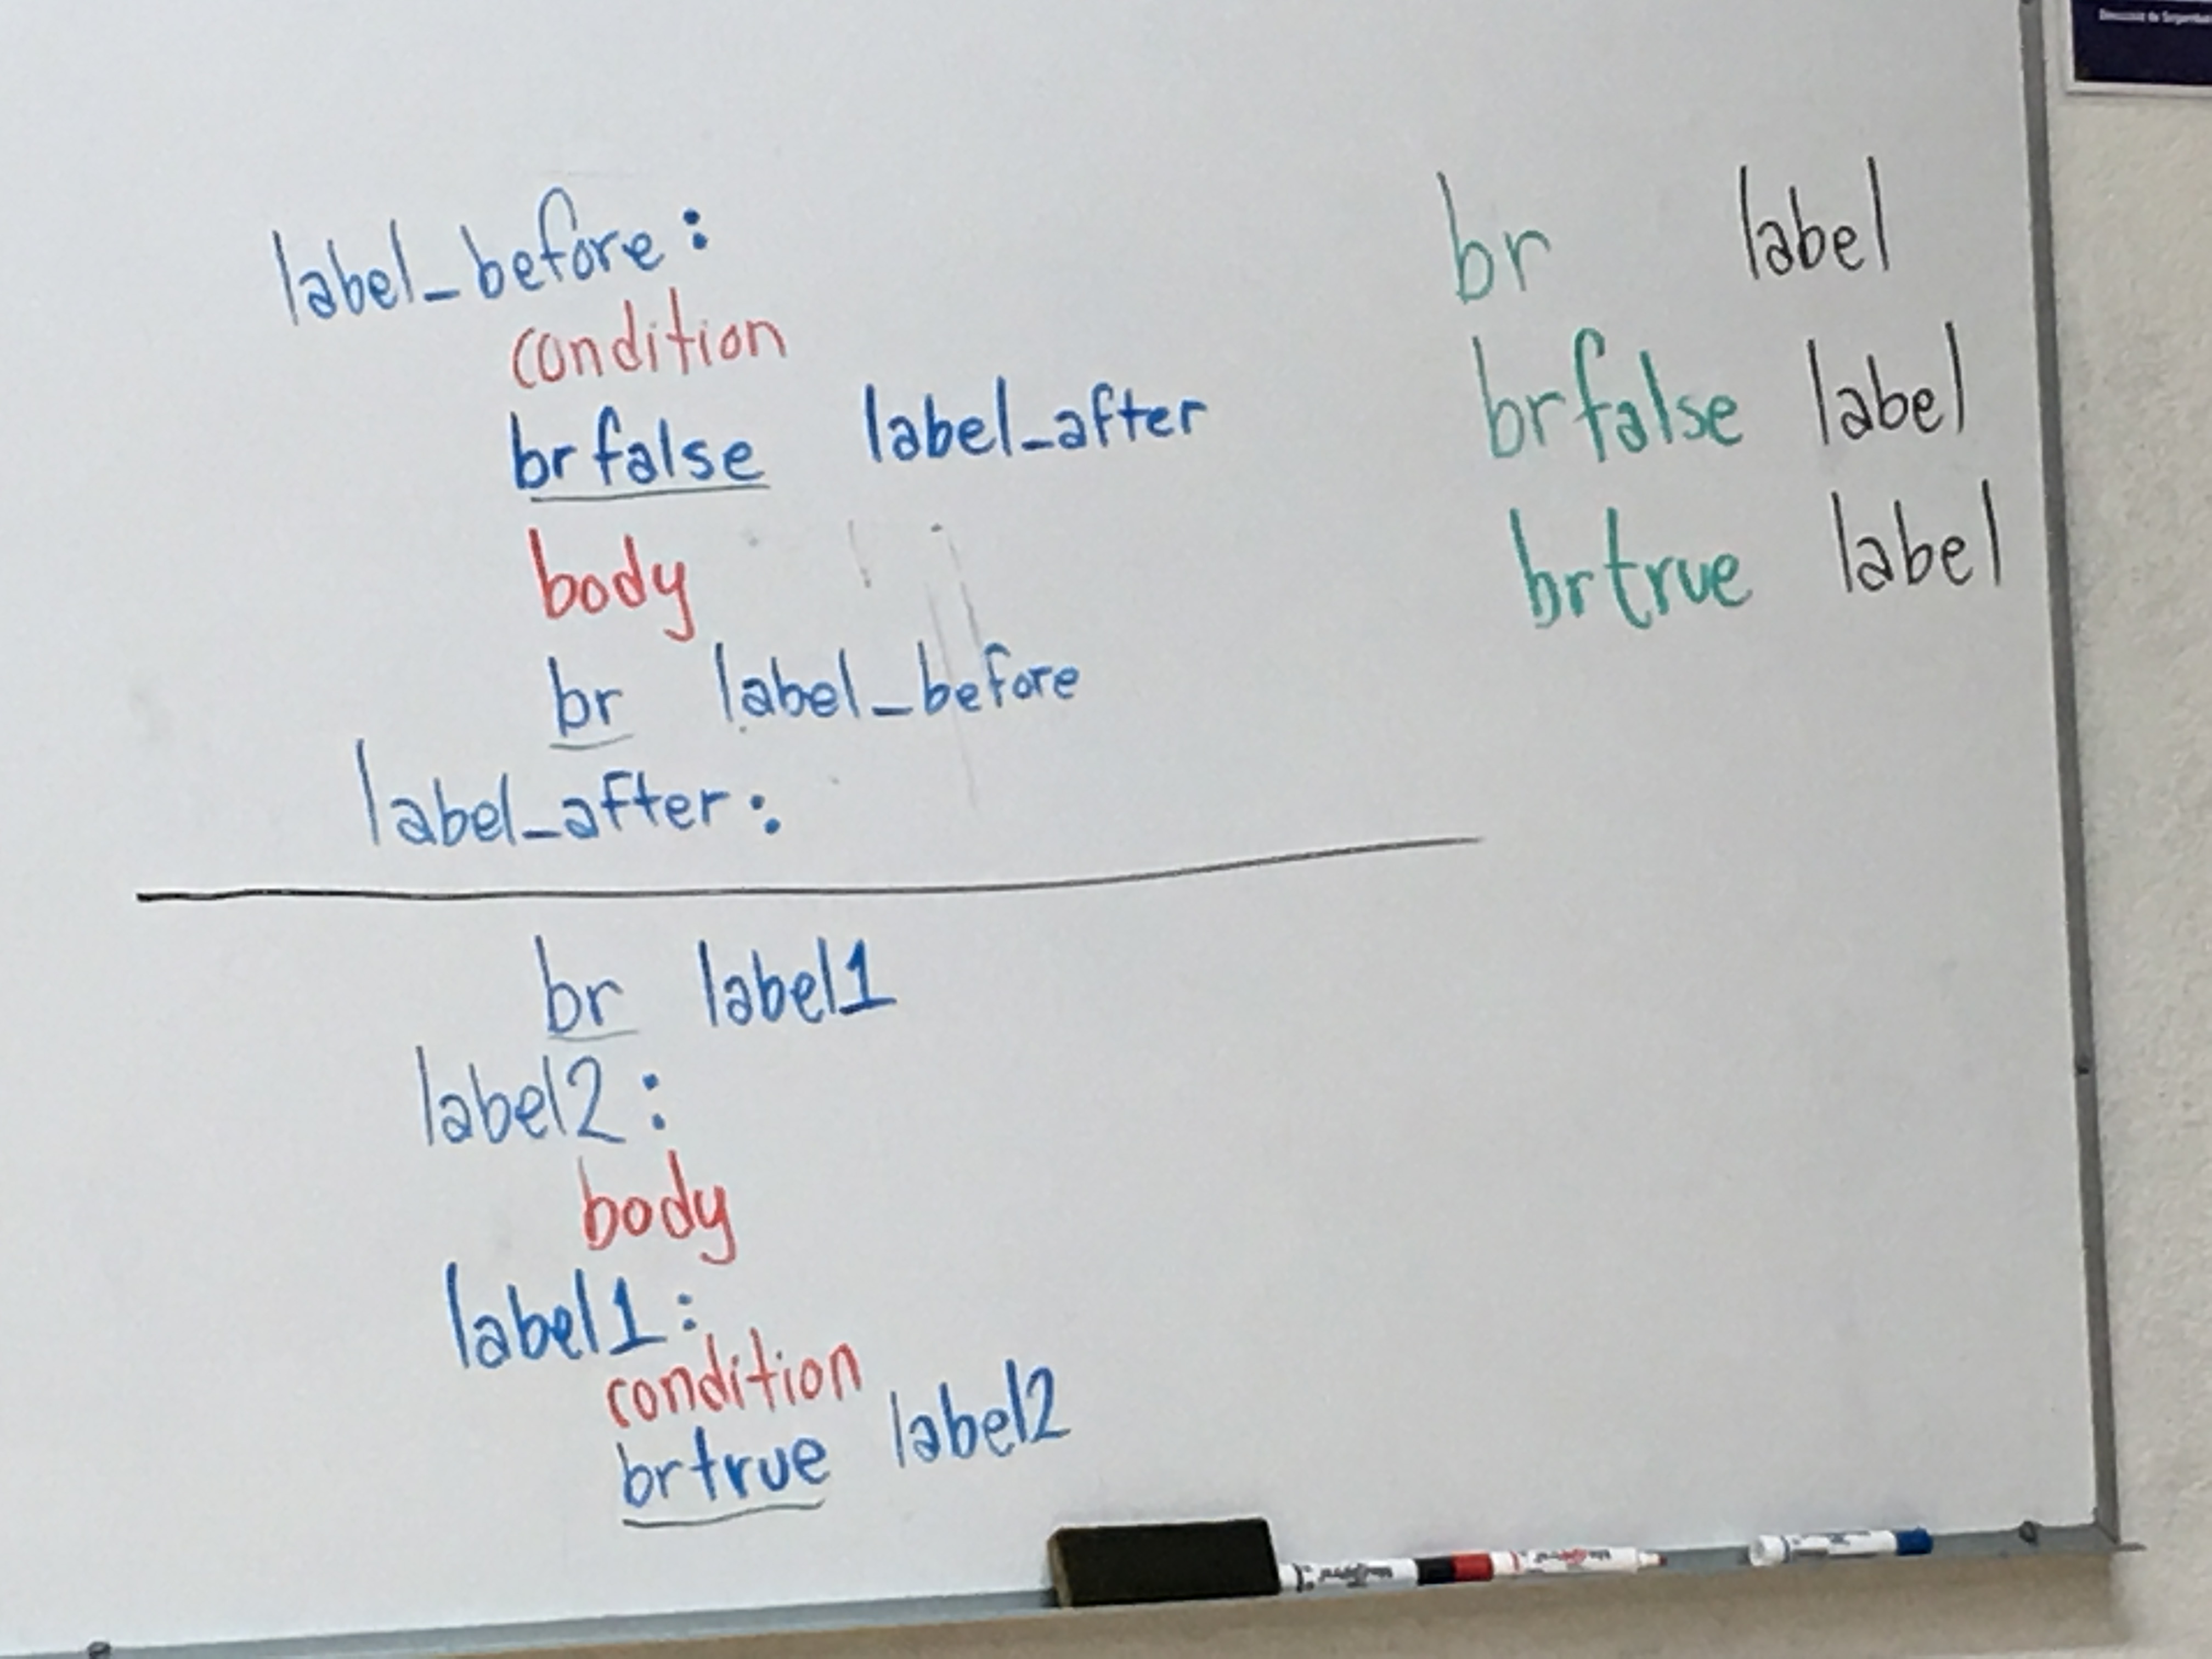 label_before:
condition
brfalse label_after
body
br label_before
label_after:
br label1
label2:
body
label1:
condition
brtrue label2
br label
brfalse label
brtrue label